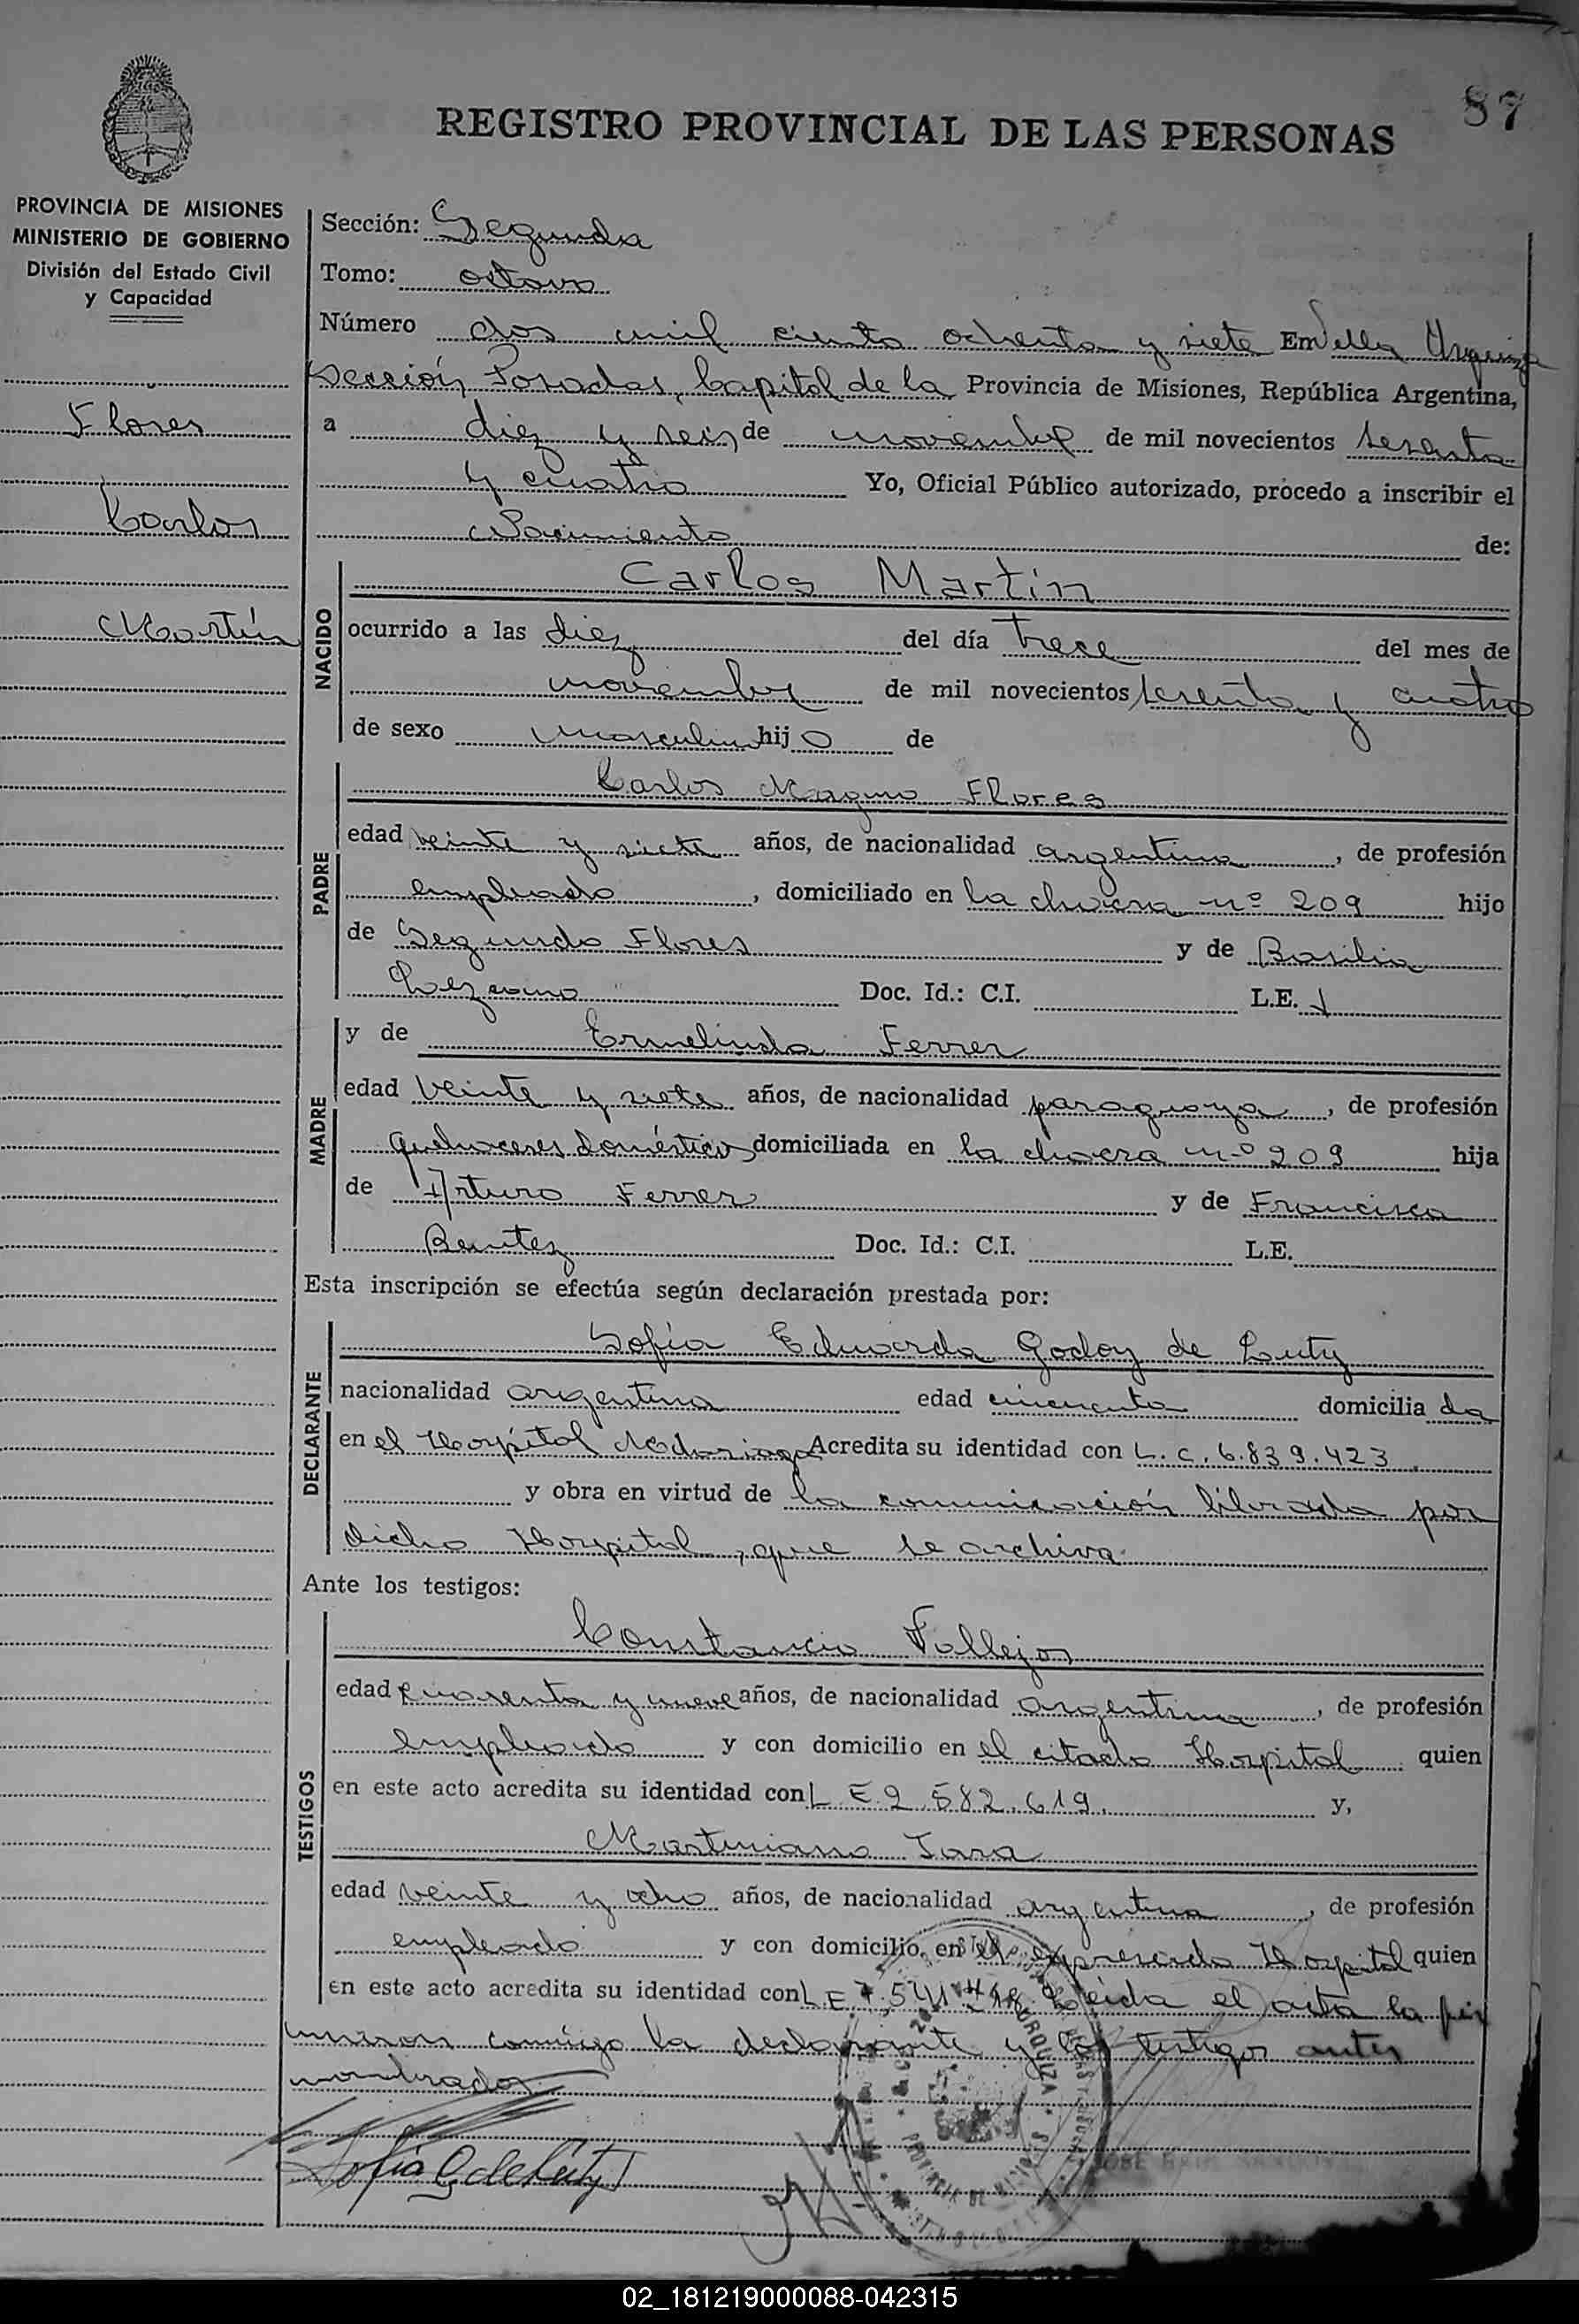 87
REGISTRO PROVINCIAL DE LAS PERSONAS
PROVINCIA DE MISIONES
MINISTERIO DE GOBIERNO
División del Estado Civil
y Capacidad
Flores
Carlos
Martín
Sección: Segunda
Tomo: octavo
Número dos mil ciento ochenta y siete En Villa Urquiza
Sección Posadas, Capital de la Provincia de Misiones, República Argentina,
a diez y seis de noviembre de mil novecientos sesenta
y cuatro Yo, Oficial Público autorizado, procedo a inscribir el
Nacimiento de:
NACIDO
Carlos Martín
ocurrido a las diez del día trece del mes de
noviembre de mil novecientos sesenta y cuatro
de sexo masculino hijo de
PADRE
Carlos Magno Flores
edad veinte y siete años, de nacionalidad argentina, de profesión
empleado, domiciliado en la chacra nº 209 hijo
de Segundo Flores y de Basilia
Lezcano Doc. Id.: C.I. L.E.
MADRE
y de Ermelinda Ferrer
edad veinte y siete años, de nacionalidad paraguaya, de profesión
quehaceres domésticos domiciliada en la chacra nº 209 hija
de Arturo Ferrer y de Francisca
Benitez Doc. Id.: C.I. L.E.
Esta inscripción se efectúa según declaración prestada por:
DECLARANTE
Sofía Eduarda Godoy de Luty
nacionalidad argentina edad cincuenta domiciliada
en el Hospital Madariaga Acredita su identidad con L.C. 6.839.423
y obra en virtud de la comunicación librada por
dicho Hospital, que se archiva.
Ante los testigos:
TESTIGOS
Constancio Vallejos
edad cuarenta y nueve años, de nacionalidad argentina, de profesión
empleado y con domicilio en el citado Hospital quien
en este acto acredita su identidad con L E 2.582.619. y,
Martiniano Jara
edad veinte y ocho años, de nacionalidad argentina, de profesión
empleado y con domicilio en el expresado Hospital quien
en este acto acredita su identidad con L.E. Leída el acta la fir
maron conmigo la declarante y los testigos antes
nombrados
Sofía G de Luty
PROVINCIA DE MISIONES
JOSE RAUL
02_181219000088-042315